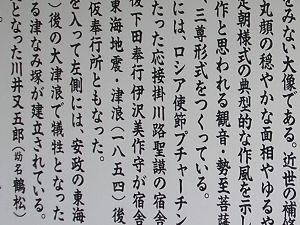 をみない大像である。近世の補修
丸顔の穏やかな面相やゆるや
定朝様式の典型的な作風を示し
作と思われる観音・勢至菩薩
三尊形式をつくっている。
には、ロシア使節プチャーチン
たった応接掛川路聖謨の宿舎
後下田奉行伊沢美作守が宿舎
東海地震・津浪(一八五四)後
仮奉行所ともなった。
を入って左側には、安政の東海
)後の大津浪で犠牲となった
る津なみ塚が建立されている。
となった川井又五郎(幼名 鶴松)